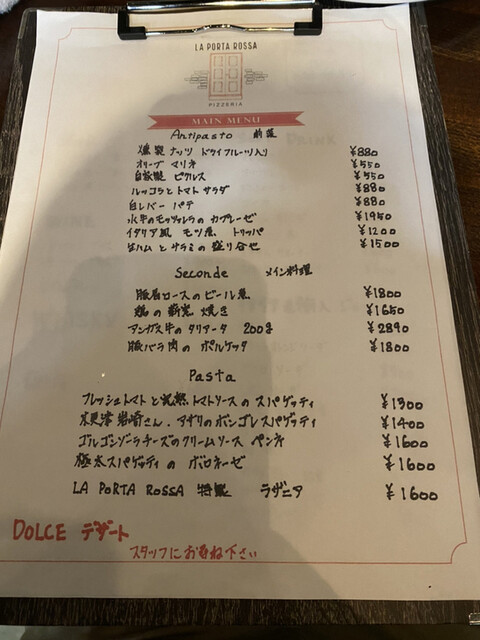 LA PORTA ROSSA
PIZZERIA
MAIN MENU
Antipasto 前菜
燻製ナッツ ドライフルーツ入り ¥880
オリーブ マリネ ¥550
自家製 ピクルス ¥550
ルッコラとトマト サラダ ¥880
白レバー パテ ¥880
水牛のモッツァレラの カプレーゼ ¥1950
イタリア風 モツ煮 トリッパ ¥1200
生ハムとサラミの盛り合せ ¥1500
Seconde メイン料理
豚肩ロースのビール煮 ¥1800
鶏の薪窯焼き ¥1650
アンガス牛のタリアータ 200g ¥2890
豚バラ肉の ポルケッタ ¥1800
Pasta
フレッシュトマトと完熟トマトソースの スパゲッティ ¥1300
木更津 岩崎さん、アサリのボンゴレスパゲッティ ¥1400
ゴルゴンゾーラチーズのクリームソース ペンネ ¥1600
極太スパゲッティの ボロネーゼ ¥1600
LA PORTA ROSSA 特製 ラザニア ¥1600
DOLCE デザート
スタッフにお尋ね下さい